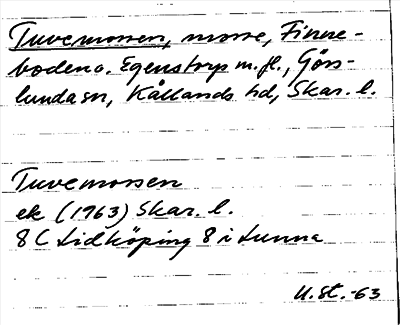 Tuvemossen, mosse, Finne-
boden o. Egenstorp m.fl., Görs-
lunda sn, Kållands hd, Skar. l.
Tuvemossen
ek (1963) Skar. l.
8 C Lidköping 8 i Lunna
U.St.-63